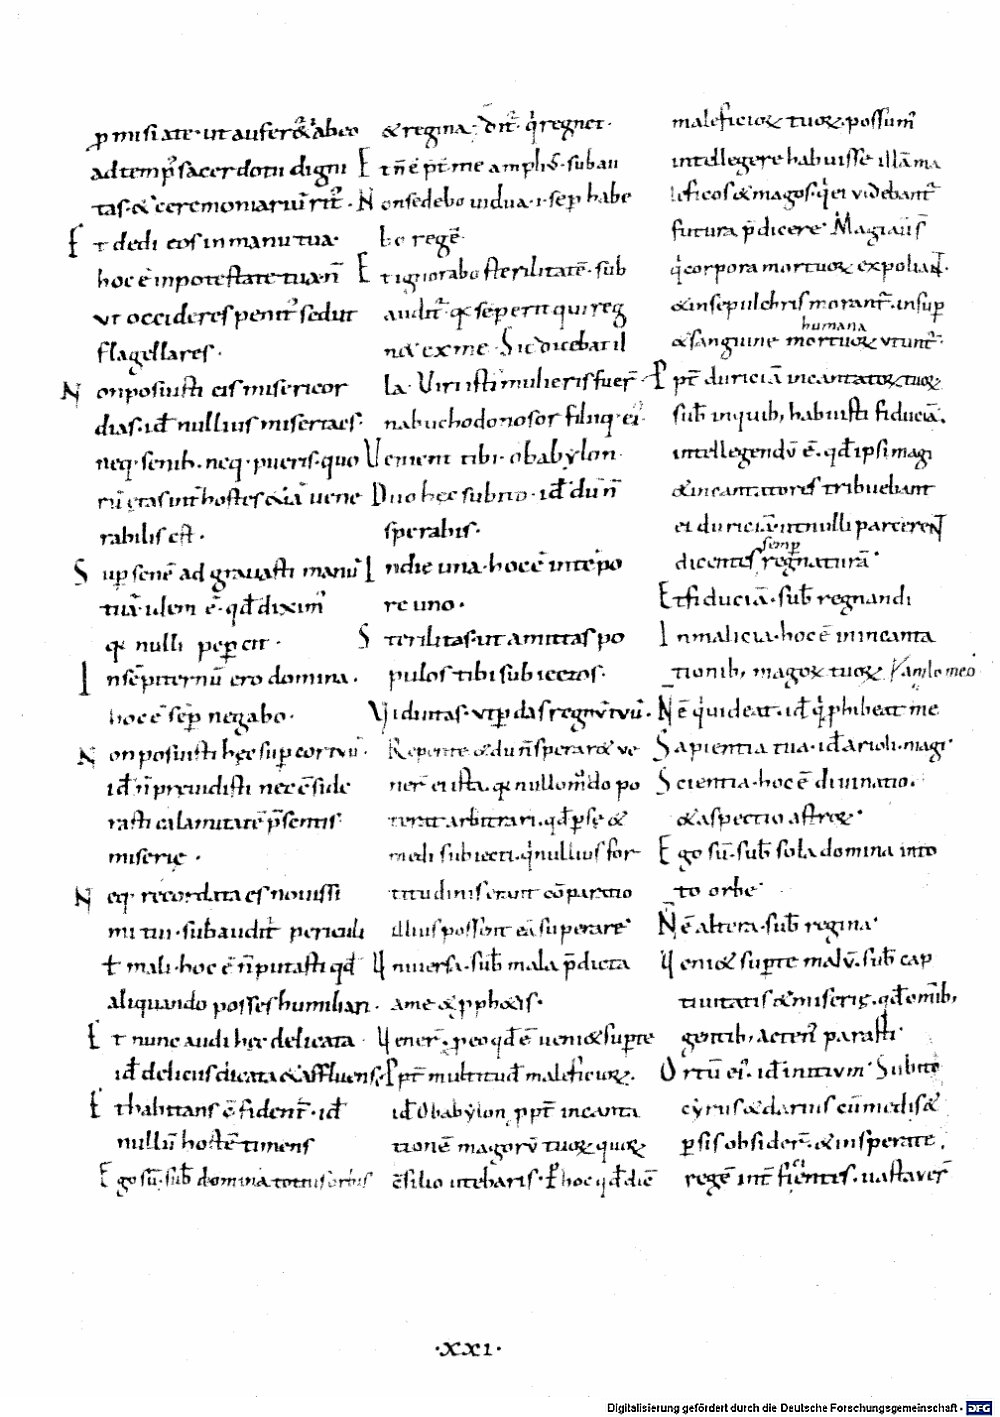 ꝑmisi a te · ut auferet̃ ab eo
ad temp᷒ sacerdotii digni
tas · & ceremoniarũ rit᷒ ·
Et dedi eos in manu tua ·
hoc ẽ in potestate tua · ñ
ut occideres penit᷒ sed ut
flagellares ·
Non posuisti eis misericor
dias · id̃ nullius miserta es ·
neq· senib· neq· pueris · quo
rũ ętas int̃ hostes & iã vene
rabilis est ·
Suꝑ senẽ adgravasti manũ
tuã · idem ẽ · qd̃ dixim᷒
qꝫ nulli peꝑcit ·
In sẽpiternũ ero domina ·
hoc ẽ seꝑ negabo ·
Non posuisti hęc suꝑ cor tuũ ·
id̃ ñ pręvidisti nec cõside
rasti calamitatẽ p̃sentis
miserię ·
Neq· recordata es novissi
mi tui · sub̃audit̃ periculi
t mali · hoc ẽ ñ putasti qd̃
aliquando posses humiliari ·
Et nunc audi hęc delicata ·
id̃ deliciis dicata & affluens ·
Et habitans cõfident̃ · id̃
nullũ hostẽ timens
Ego sũ · sub̃ domina totius orbis
& regina · dñt̃ · q̓ regnet ·
Et ñ ẽ p̃t̃ me amplius · subau
Non sedebo vidua · i · seꝑ habe
bo regẽ ·
Et ignorabo sterilitatẽ · sub
audit̃ · qꝫ seꝑ erit qui reg
n& ex me · Sic dicebat il
la · Viri isti mulieris fuer̃
nabuchodonosor filiiq· ei᷒ ·
Venient tibi · o babylon ·
Duo hęc subito · id̃ dũ ñ
sperabis ·
In die una · hoc ẽ in tẽpo
re uno ·
Sterilitas · ut amittas po
pulos tibi subiectos ·
Viduitas · ut ꝑdas regnũ tuũ ·
Repente & dũ ñ sperar& ve
ner̃ ei ista · qꝫ nullo m̊do po
terat arbitrari · qd̃ ꝑsę &
medi subiecti · q̓ nullius for
titudinis erant cõparatio
illius possent eã superare ·
Universa · sub̃ mala p̃dicta
a me & ꝓph&is ·
Vener̃ · ꝓ eo qd̃ ẽ veni& suꝑ te
Ppt̃ multitud̃ maleficioꝝ ·
id̃ o babylon ꝓpt̃ incanta
tionẽ magorũ tuoꝝ quoꝝ
cõsilio utebaris · P hoc qd̃ diẽ
maleficioꝝ tuoꝝ · possum᷒
intellegere habuisse illã ma
leficos & magos · q̓ ei videbant̃
futura p̃dicere · Magi aũ s̃
q̓ corpora mortuoꝝ expoliaNT ·
& in sepulchris morant̃ · insuꝑ
humana
& sanguine mortuoꝝ utunt̃ ·
Ppt̃ duriciã incantatoꝝ tuoꝝ
sub̃ inquib· habuisti fiduciã ·
intellegendũ ẽ · qd̃ ipsi magi
& incantatores tribuebant
ei duriciã · ut nulli parcereNT
semꝑ
dicentes regnaturã ·
Et fiduciã · sub̃ regnandi
In malicia · hoc ẽ in incanta
tionib· magoꝝ tuoꝝ
Nẽ q̓ videat · id̃ q̓ ꝓhibeat me
Sapientia tua · id̃ arioli · magi ·
Scientia · hoc ẽ divinatio ·
& aspectio astroꝝ ·
Ego sũ · sub̃ sola domina in to
to orbe ·
Nẽ altera · sub̃ regina ·
Veni& suꝑ te malũ · sub̃ cap
tivitatis & miserię · qd̃ omĩb·
gentib· a c̃ten᷒ parasti ·
Ortũ ei᷒ · id̃ initium · Subito
cyrus & darius cũ medis &
ꝑsis obsider̃ · & insperate ·
regẽ int̃fic̃ientes · vastaver̃
· XXI ·
Digitalisierung gefördert durch die Deutsche Forschungsgemeinschaft - DFG